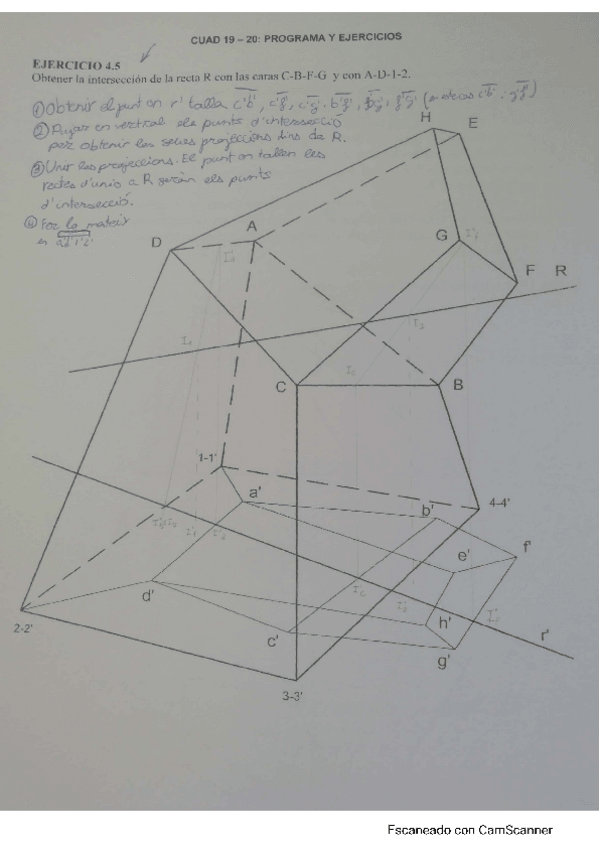 CUAD 19 – 20: PROGRAMA Y EJERCICIOS
EJERCICIO 4.5
Obtener la intersección de la recta R con las caras C-B-F-G y con A-D-1-2.
① Obtenir el punt on r' talla c'b', c'f', c'g', b'f',
② Pujar en vertical els punts d'intersecció
per obtenir les seues projeccions dins de R.
③ Unir les projeccions. El punt on tallen les
rectes d'unió a R seràn els punts
d'intersecció.
④ Fer lo mateix
en a'd'1'2'
H
E
A
D
G
F
R
C
B
1-1'
a'
b'
4-4'
e'
f'
d'
2-2'
c'
h'
g'
r'
3-3'
Escaneado con CamScanner